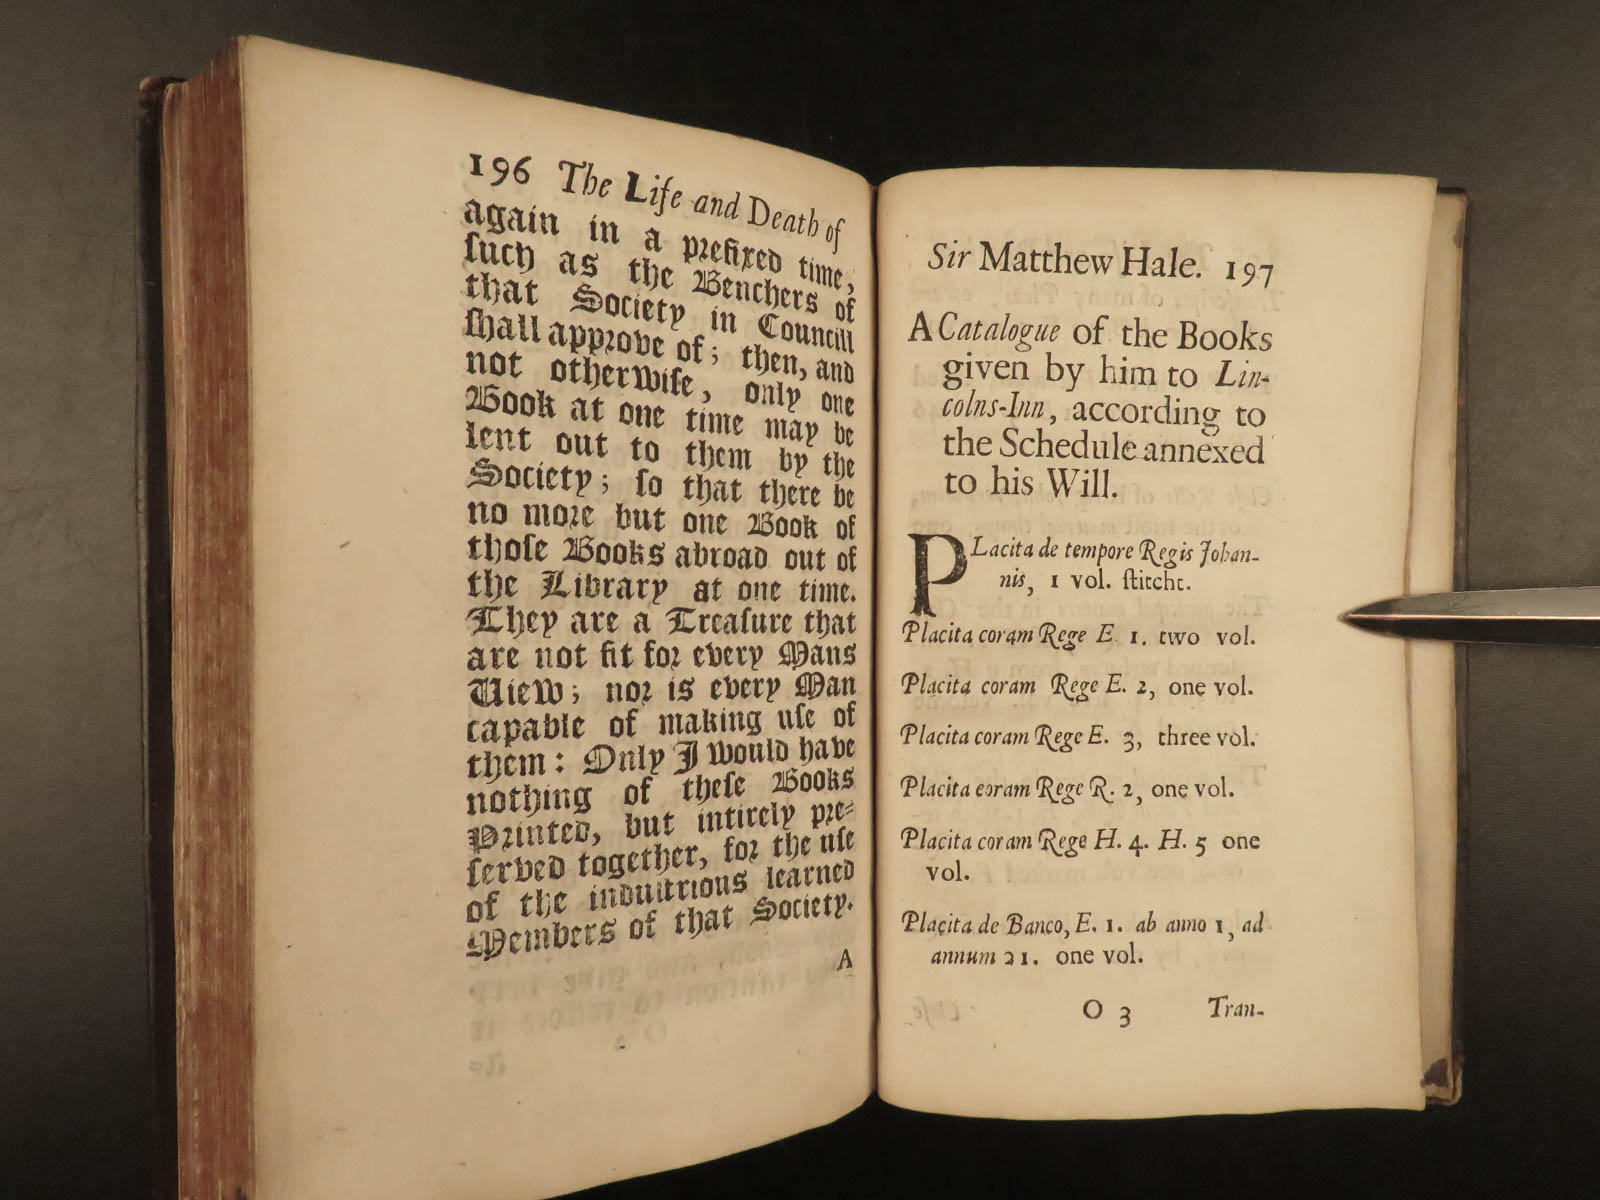 196 The Life and Death of
again in a prefixed time,
ſuch as the Benchers of
that Society in Councill
ſhall approve of; then, and
not otherwiſe, only one
Book at one time may be
lent out to them by the
Society; ſo that there be
no more but one Book of
thoſe Books abroad out of
the Library at one time.
They are a Treaſure that
are not fit for every Mans
View; nor is every Man
capable of making uſe of
them: Only I would have
nothing of theſe Books
Printed, but intirely pre-
ſerved together, for the uſe
of the induſtrious learned
Members of that Society.
A
Sir Matthew Hale. 197
A Catalogue of the Books
given by him to Lin-
colns-Inn, according to
the Schedule annexed
to his Will.
PLacita de tempore Regis Johan-
nis, 1 vol. ſtitcht.
Placita coram Rege E. 1. two vol.
Placita coram Rege E. 2, one vol.
Placita coram Rege E. 3, three vol.
Placita coram Rege R. 2, one vol.
Placita coram Rege H. 4. H. 5 one
vol.
Placita de Banco, E. 1. ab anno 1, ad
annum 21. one vol.
O 3 Tran-